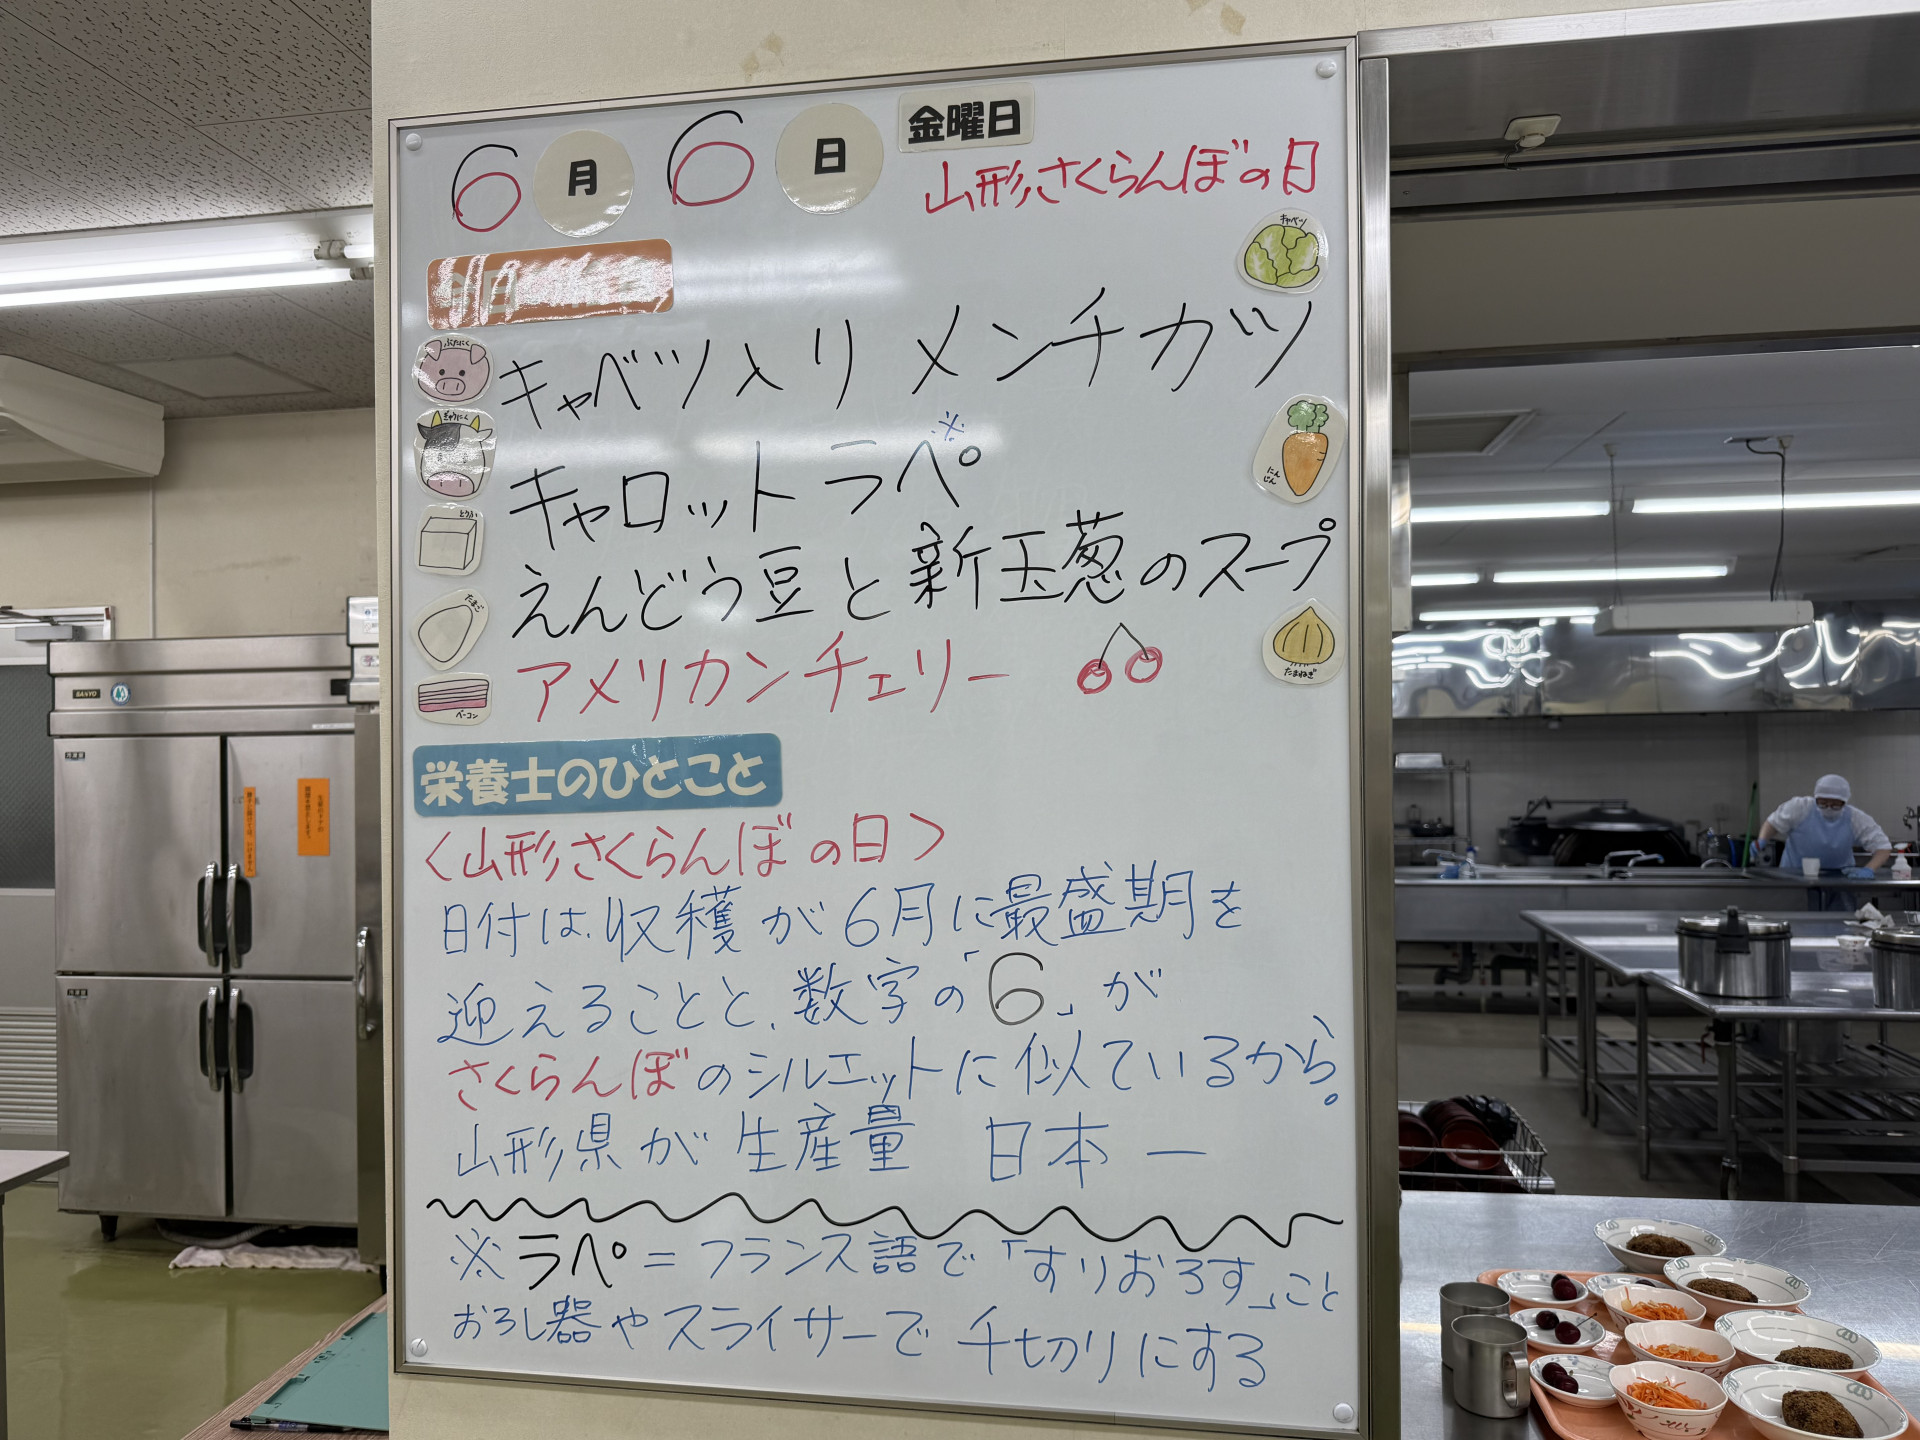 6月6日 金曜日
山形さくらんぼの日
キャベツ
今日
ぶたにく
キャベツ入りメンチカツ
ぎゅうにく
キャロットラペ※
にんじん
とうふ
えんどう豆と新玉葱のスープ
たまご
アメリカンチェリー
たまねぎ
ベーコン
栄養士のひとこと
<山形さくらんぼの日>
日付は、収穫が6月に最盛期を
迎えることと、数字の「6」が
さくらんぼのシルエットに似ているから。
山形県が生産量 日本一
※ラペ=フランス語で「すりおろす」こと
おろし器やスライサーで千切りにする
SANYO